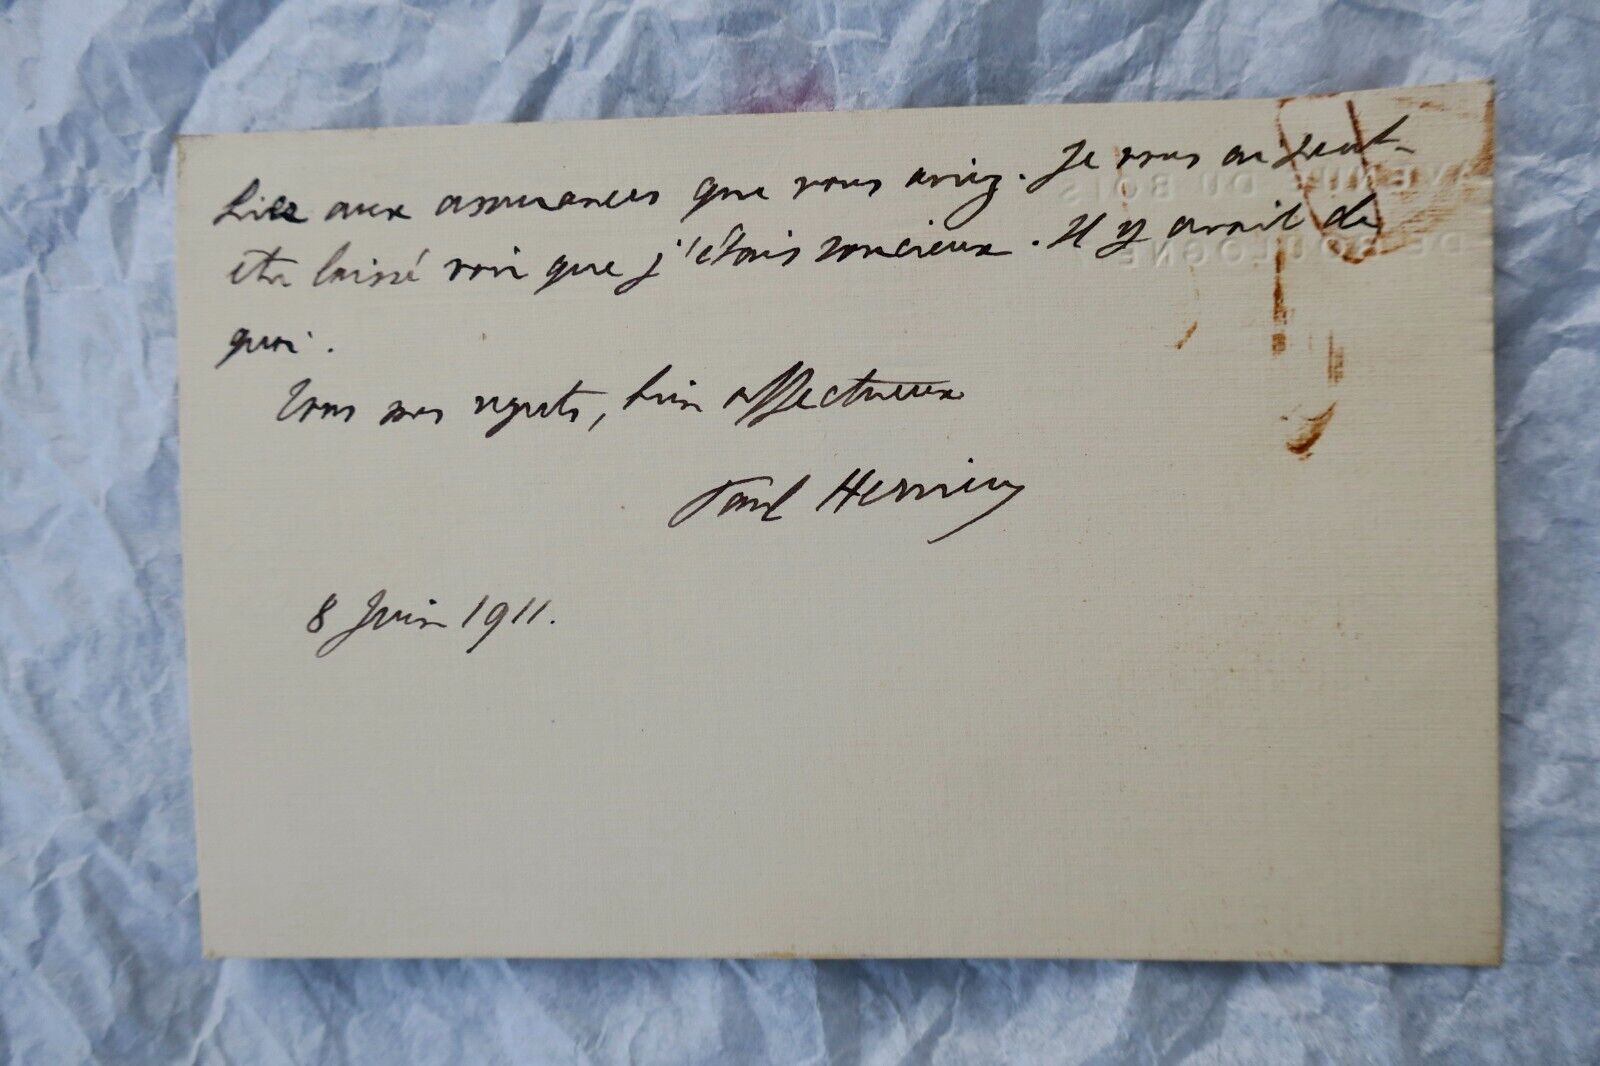 aux assurances que vous aviez. Je vous ai peut-
être laissé voir que j'étais soucieux. Il y avait de
quoi.
Tous mes regrets, bien affectueux
Paul Hervieu
8 Juin 1911.
AVENUE DU BOIS
DE BOULOGNE